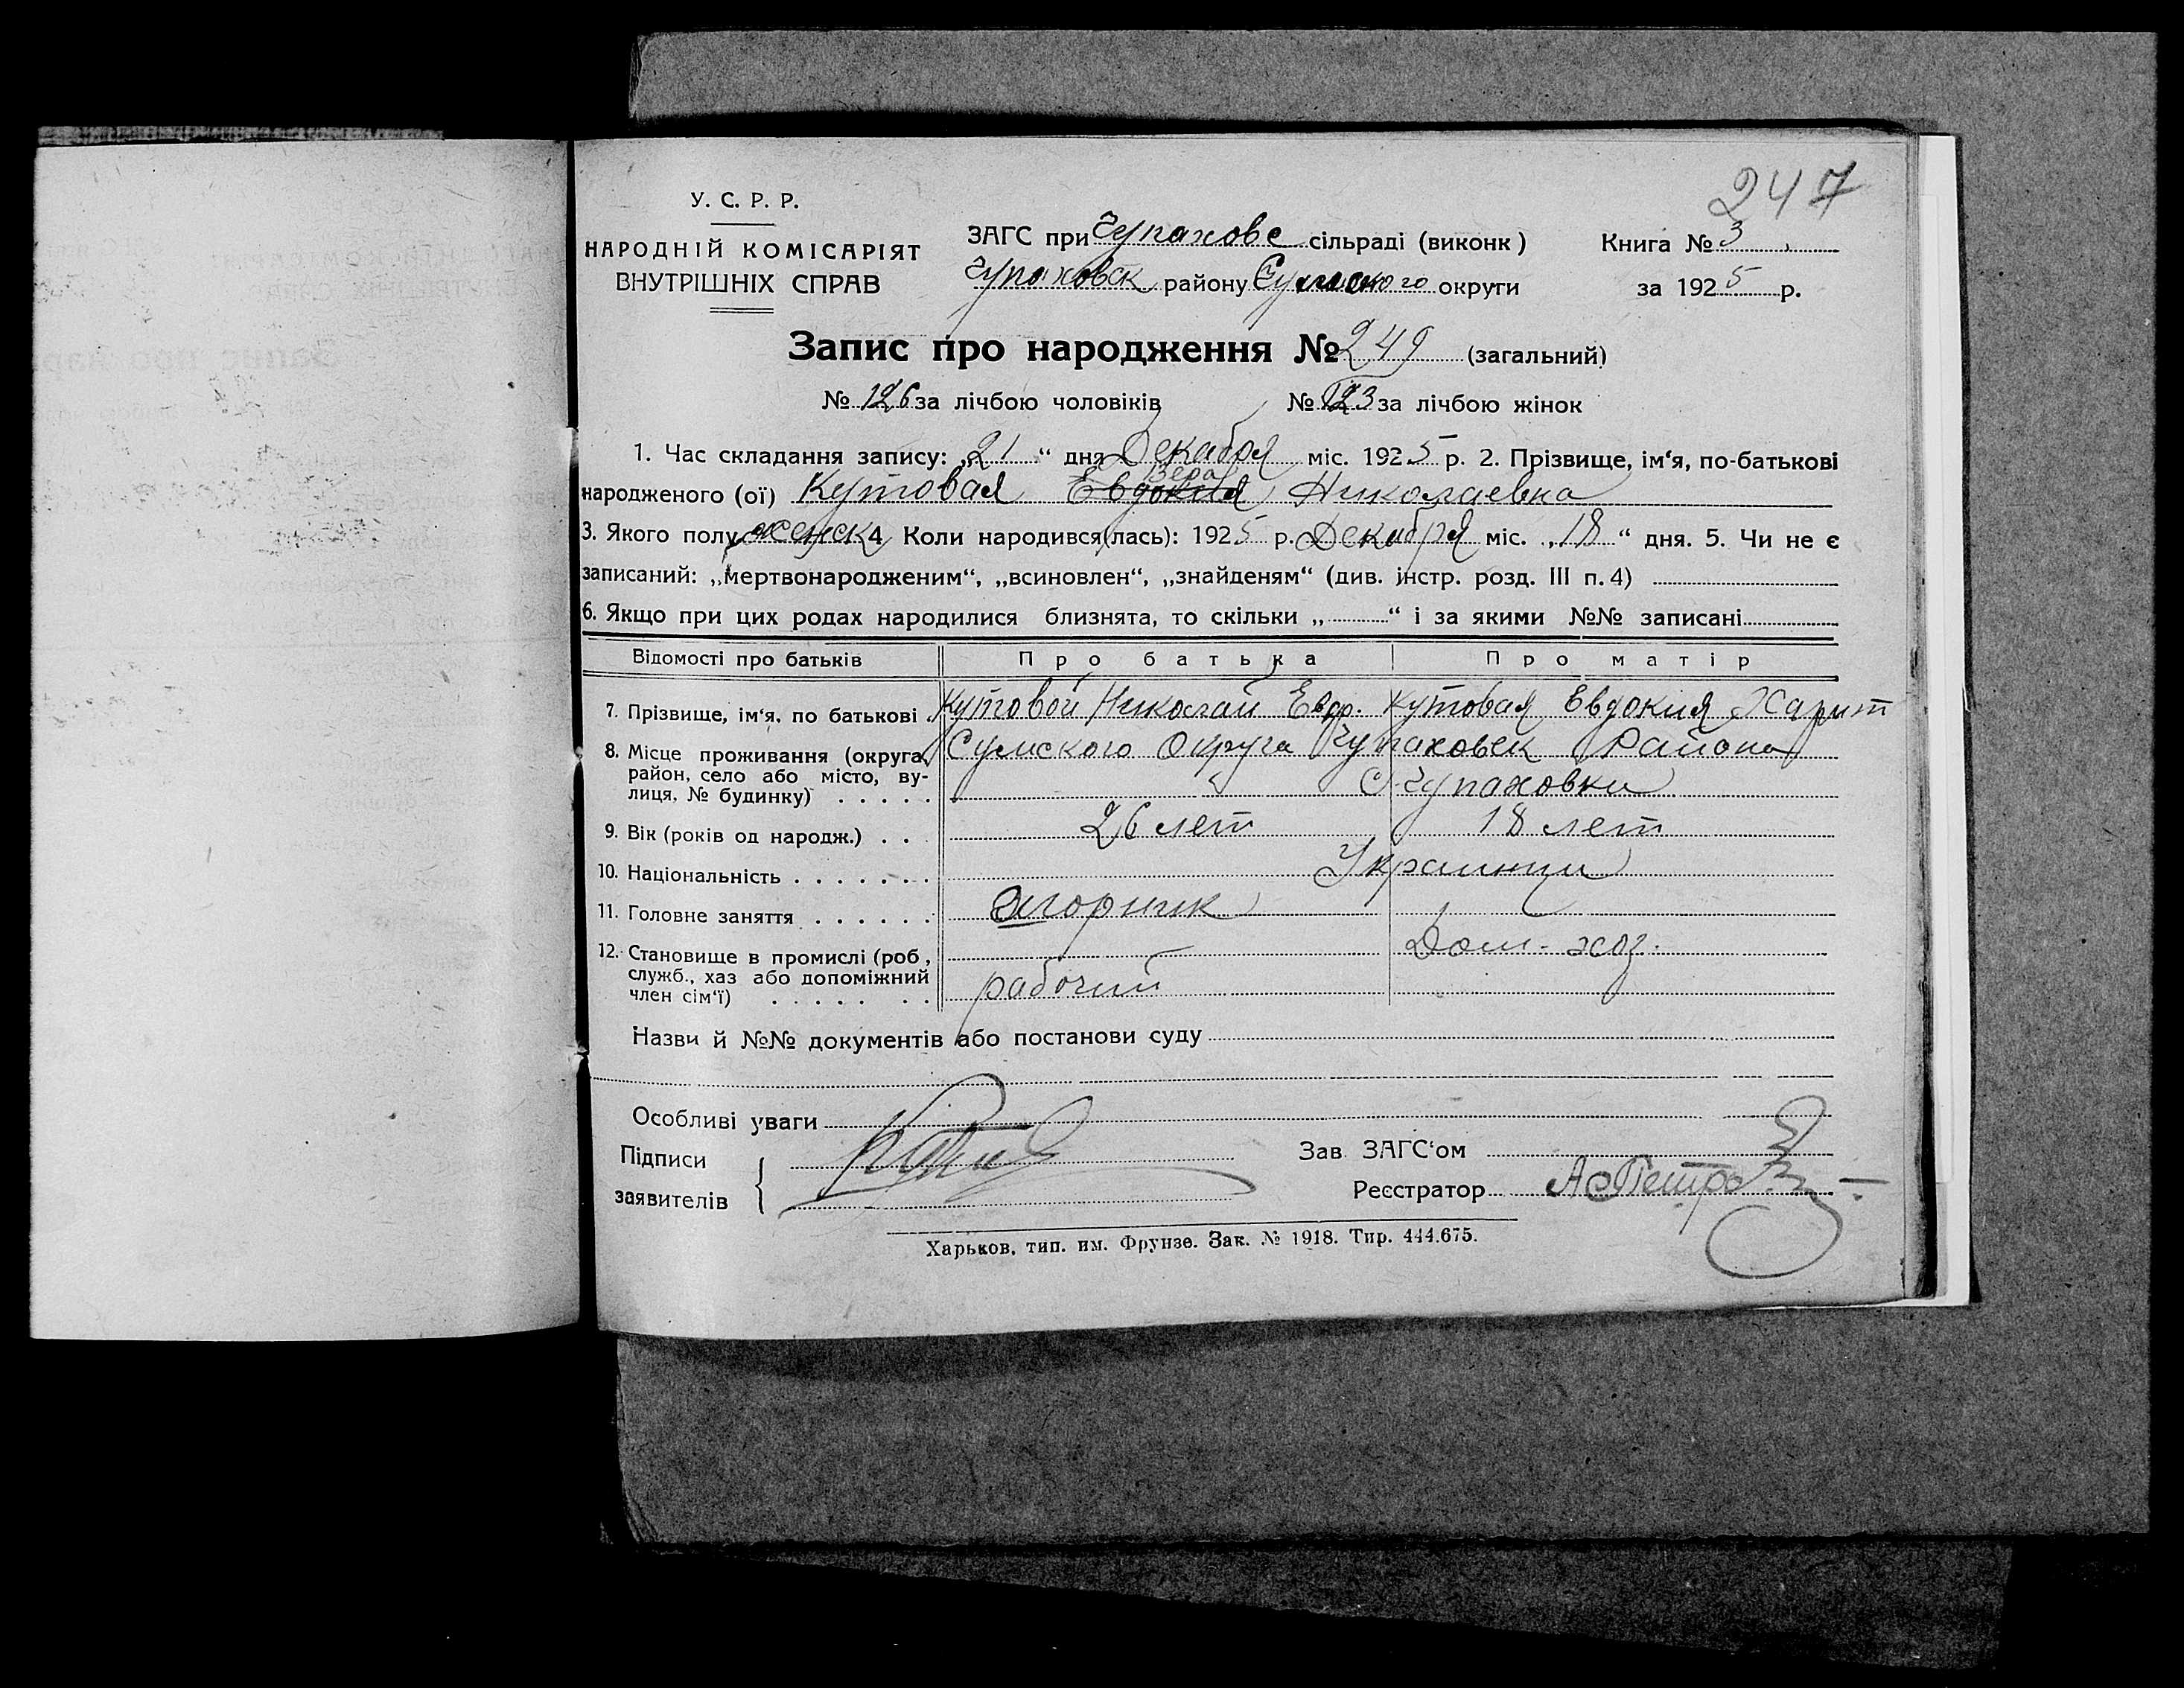 247
У. С. Р. Р.
НАРОДНІЙ КОМІСАРІЯТ
ВНУТРІШНІХ СПРАВ
ЗАГС при Чупахове сільраді (виконк)
Чупаховск району Сумского округи
Книга № 3
за 1925 р.
Запис про народження № 249 (загальний)
№ 126 за лічбою чоловіків № 123 за лічбою жінок
1. Час складання запису: „21“ дня Декабря міс. 1925 р. 2. Прізвище, ім‘я, по-батькові
Вера
народженого (ої) Кутовая Евдокия Николаевна
3. Якого полу женск 4 Коли народився(лась): 1925 р. Декабря міс. „18“ дня. 5. Чи не є
записаний: „мертвонародженим“, „всиновлен“, „знайденям“ (див. інстр. розд. III п. 4)
6. Якщо при цих родах народилися близнята, то скільки „ “ і за якими №№ записані
Відомості про батьків Про батька Про матір
7. Прізвище, ім‘я, по батькові Кутовой Николай Евдр. Кутовая Евдокия Харит
8. Місце проживання (округа, Сумского Округа Чупаховск Района
район, село або місто, ву- С. Чупаховки
лиця, № будинку)
9. Вік (років од народж.) 26 лет 18 лет
10. Національність Украинци
11. Головне заняття
12. Становище в промислі (роб, Дом-хоз.
служб., хаз або допоміжний рабочий
член сім‘ї)
Назви й №№ документів або постанови суду
Особливі уваги
Підписи
заявителів
Зав. ЗАГС‘ом
Реєстратор
Харьков, тип. им. Фрунзе. Зак. № 1918. Тир. 444.675.